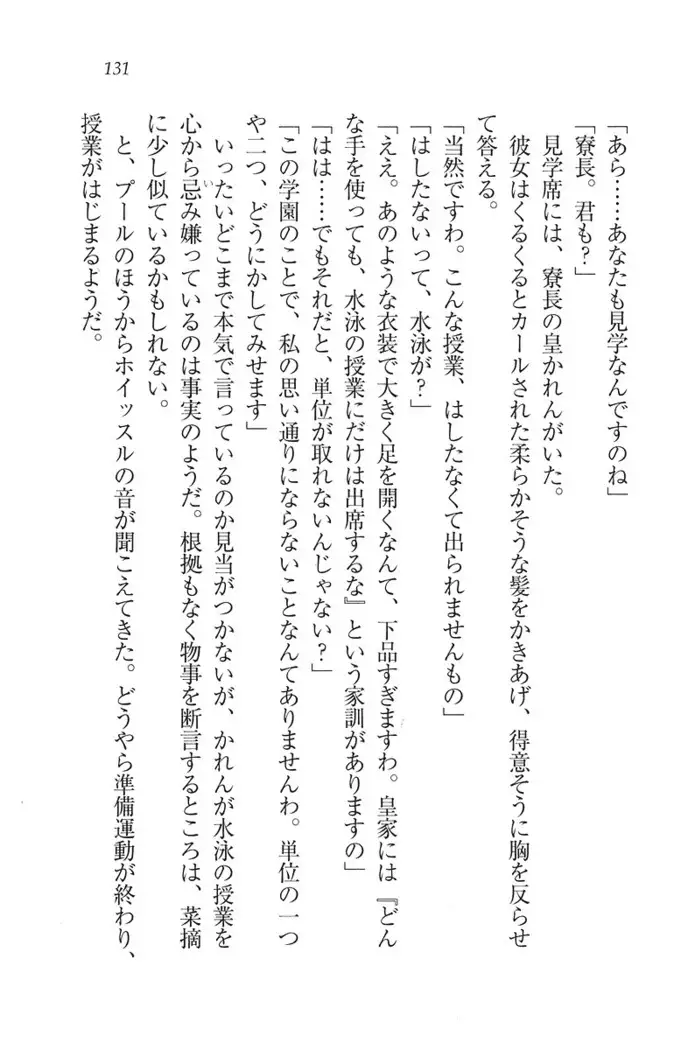 131
「あら……あなたも見学なんですのね」
「寮長。君も？」
　見学席には、寮長の皇かれんがいた。
　彼女はくるくるとカールされた柔らかそうな髪をかきあげ、得意そうに胸を反らせ
て答える。
「当然ですわ。こんな授業、はしたなくて出られませんもの」
「はしたないって、水泳が？」
「ええ。あのような衣装で大きく足を開くなんて、下品すぎますわ。皇家には『どん
な手を使っても、水泳の授業にだけは出席するな』という家訓がありますの」
「はは……でもそれだと、単位が取れないんじゃない？」
「この学園のことで、私の思い通りにならないことなんてありませんわ。単位の一つ
や二つ、どうにかしてみせます」
　いったいどこまで本気で言っているのか見当がつかないが、かれんが水泳の授業を
心から忌み嫌っているのは事実のようだ。根拠もなく物事を断言するところは、菜摘
に少し似ているかもしれない。
　と、プールのほうからホイッスルの音が聞こえてきた。どうやら準備運動が終わり、
授業がはじまるようだ。